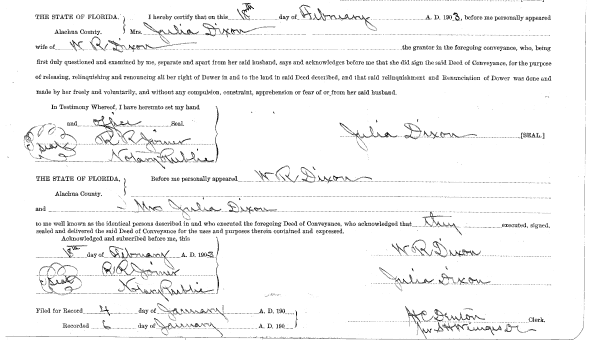 THE STATE OF FLORIDA, } I hereby certify that on this 18th day of February A. D. 1903, before me personally appeared
Alachua County. Mrs. Julia Dixon
wife of W R Dixon the grantor in the foregoing conveyance, who, being
first duly questioned and examined by me, separate and apart from her said husband, says and acknowledges before me that she did sign the said Deed of Conveyance, for the purpose
of releasing, relinquishing and renouncing all her right of Dower in and to the land in said Deed described, and that said relinquishment and Renunciation of Dower was done and
made by her freely and voluntarily, and without any compulsion, constraint, apprehension or fear of or from her said husband.
In Testimony Whereof, I have hereunto set my hand
and office Seal.
Seal R R Joiner
Notary Public
Julia Dixon [SEAL.]
THE STATE OF FLORIDA, } Before me personally appeared W R Dixon
Alachua County.
and Mrs Julia Dixon
to me well known as the identical persons described in and who executed the foregoing Deed of Conveyance, who acknowledged that they executed, signed,
sealed and delivered the said Deed of Conveyance for the uses and purposes therein contained and expressed.
Acknowledged and subscribed before me, this
18th day of February A. D. 1903
Seal R R Joiner
Notary Public
W R Dixon
Julia Dixon
Filed for Record 4 day of January A. D. 190
Recorded 6 day of January
H C Denton Clerk.